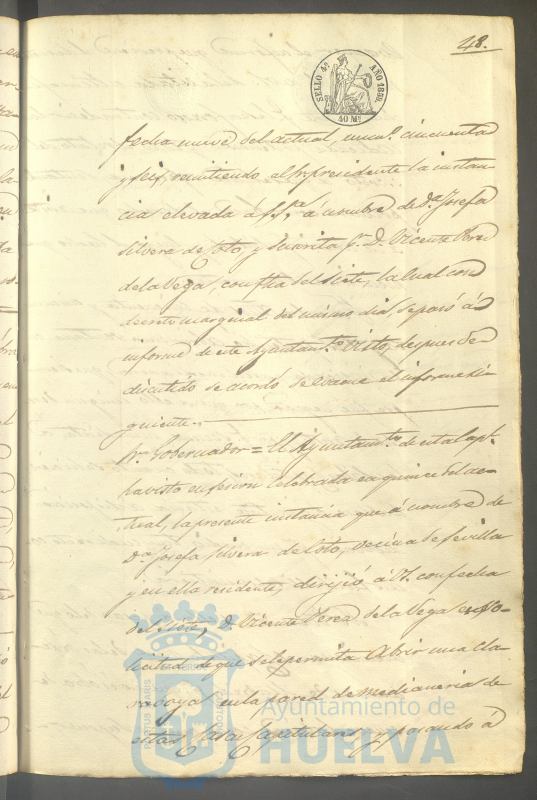 48.
SELLO 4º AÑO 1859.
40 Ms
fecha nueve del actual, num.º cincuenta
y seis, remitiendo al Sr. presidente la instan-
cia elevada á S.S.ª á nombre de D.ª Josefa
Silvera de Soto, y suscrita p.r D. Vicente Perez
de la Vega, con fha del siete, la cual con
decreto marginal del mismo dia, se pasó á
informe de este Ayuntam.to Visto, despues de
discutido se acordó se evacue el informe si-
guiente.
Sr. Gobernador = El Ayuntam.to de esta Cap.l
ha visto en sesion celebrada en quince del ac-
tual, la presente instancia que á nombre de
D.ª Josefa Silvera de Soto, vecina de Sevilla
y en ella residente, dirijió á V. con fecha
del siete, D. Vicente Perez de la Vega en so-
licitud de que se le permita abrir una cla-
raboya en la pared de medianeria de
estas Casas Capitulares, y pasando á
Ayuntamiento de
HUELVA